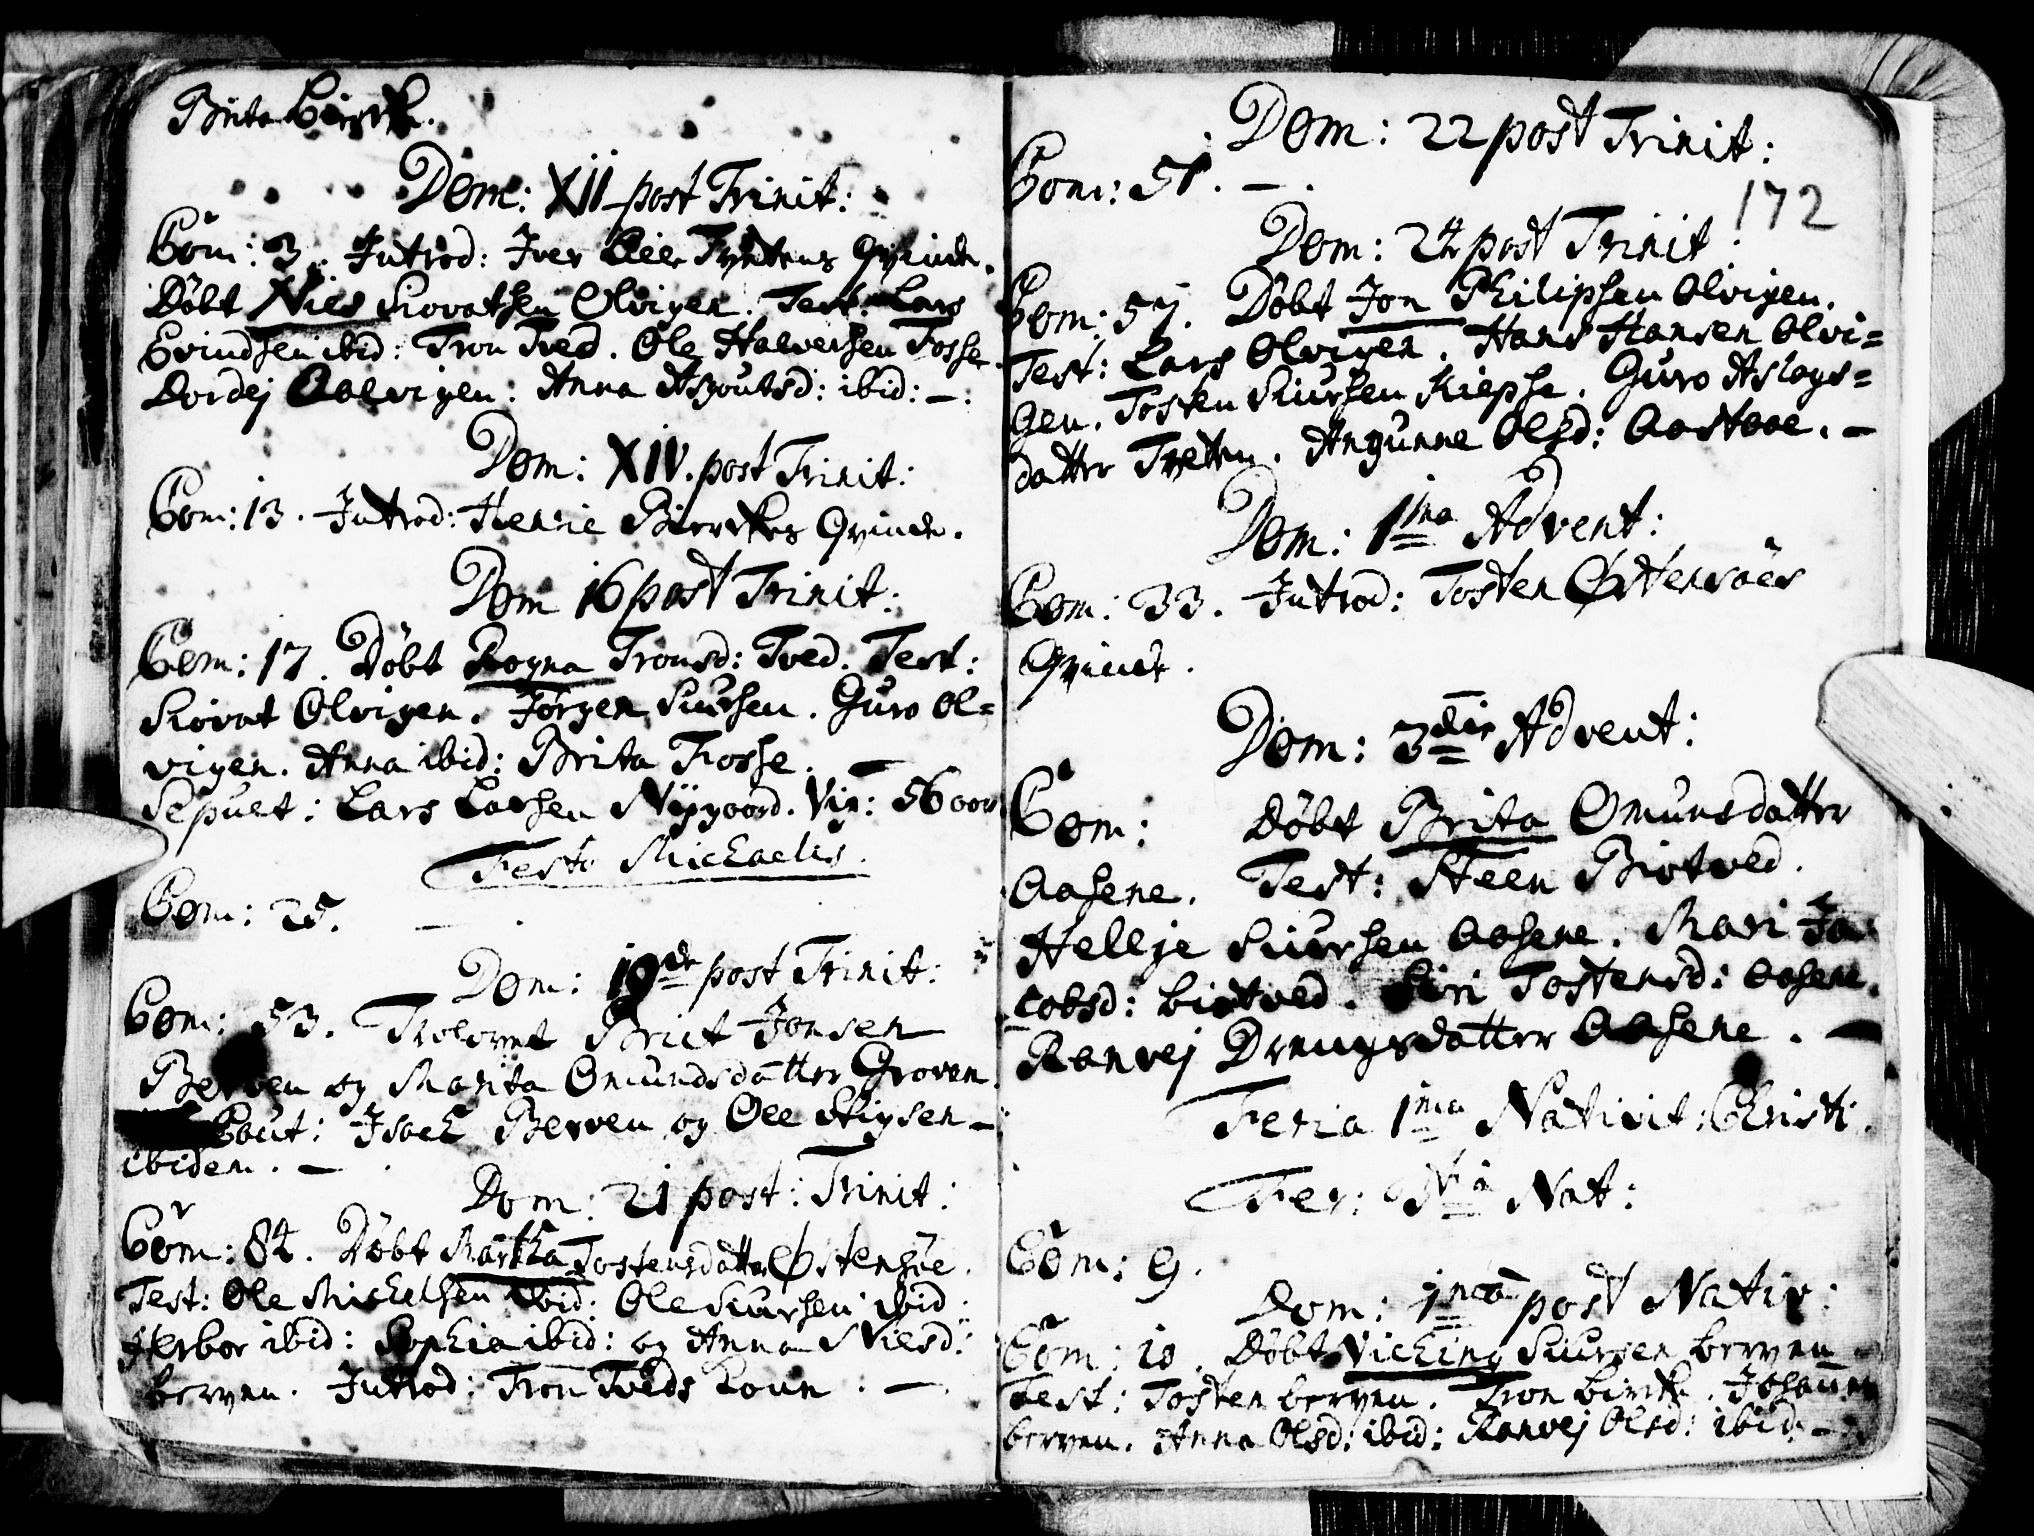 Brita Birrke.
Dom: XII post Trinit:
Com: 3. Introd: Iver Tvetens Qvinde.
Döbt Niels Siovatsen Olvigen. Test: Lars
Evindsen ibid: Tron Tved. Ole Halversen Fosse
Dordej Aalvigen: Anna Asgoutsd: ibid: –:
Dom: XIV. post Trinit:
Com: 13. Introd: Henric Birrkes Qvinde.
Dom 16 post Trinit:
Com: 17. Döbt Rogna Tronsd: Tved. Test:
Siovat Olvigen. Jörgen Siursen. Guro Ol=
vigen. Anna ibid: Brita Fosse. –
Sepult: Lars Larsen Nÿgoord. Vix: 56 oor
Festo Michaelis.
Com: 25. –
Dom: 19de post Trinit:
Com: 53. Trolovet Brict Jonsen
Berven og Marita Omundsdatter Groven.
Cout: Isach Berven og Ole Stigsen –
ibidem. –
Dom: 21 post: Trinit:
Com: 84. Döbt Martha Tostensdatter Østensöe.
Test: Ole Michelsen ibid: Ole Siursen ibid:
Herbor ibid: Sophia ibid: og Anna Nielsd:
berven. Introd: Tron Tveds Koun. –
Dom: 22 post Trinit:
Com: 51. –
172
Dom: 24 post Trinit:
Com: 57. Döbt Jon Philipsen Olvigen.
Test: Lars Olvigen. Hans Hansen Olvi=
gen. Tosten Siursen Kiepse. Guro Aslags=
datter Tveten. Angunne Olsd: Aastooe. –
Dom: 1ma Advent:
Com: 33. Introd: Tosten Østensöes
Qvinde.
Dom: 3die Advent:
Com: Döbt Brita Omunsdatter
Aasene. Test: Steen Birtved.
Hellje Siursen Aasene. Mari Ja=
cobsd: birtved. Siri Tostensd: Aasene.
Ranvej Drengsdatter Aasene. –
Feria 1ma Nativit: Christi.
Fer: Nat:
Com: 9.
Dom: 1ma post Nativ:
Com: 10. Döbt Viching Siursen berven
Test: Tosten berven. Tron birrke. Johannes
berven. Anna Olsd: ibid: Ranvej Olsd: ibid: –